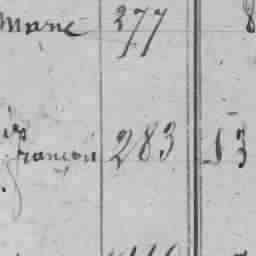 Marie 377 8
François 283 13